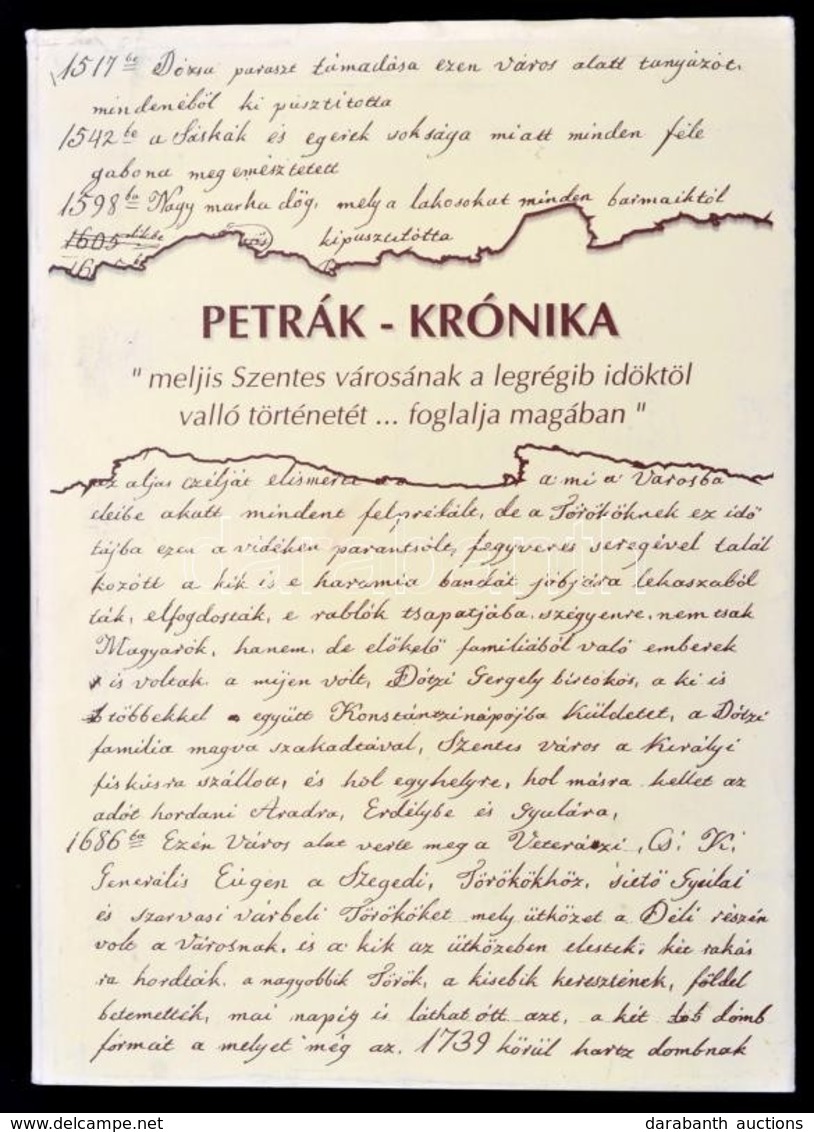 1517be Dózsa paraszt támadása ezen város alatt tanyázót,
mindenéből ki pusztitotta
1542be a Sáskák és egerek soksága miatt minden féle
gabona meg emésztetett
1598ba Nagy marha dög, mely a lakosokat minden barmaiktól
1605 kipusztitótta
PETRÁK - KRÓNIKA
" meljis Szentes városának a legrégib idöktöl
valló történetét ... foglalja magában "
az aljas czélját elismert a mi a Városba
cleibe akatt mindent felprédált, de a Törököknek ez idő
tájba ezen a vidéken parantsólt, fegyveres seregével talál
kozótt a kik is e haramia bandát jobjára lekaszaból
ták, elfogdosták, e rablók tsapatjába szégyenre, nem tsak
Magyarók, hanem, de előkelő familiából való emberek
is voltak. a mijen vólt, Dótzi Gergely birtokós, a ki is
többekkel együtt Konstántzinápojba küldetet, a Dótzi
familia magva szakadtával, Szentes város a Királyi
fiskusra szállott, és hól egyhelyre, hol másra kellet az
adót hordani Aradra, Erdélybe és Gyulára,
1686ba Ezen Város alat verte meg a Veterázzi, Cs: K:
Generális Eúgen a Szegedi, Törökökhöz, siető Gyulai
és szarvasi várbeli Törököket mely ütközet a Déli részén
volt a Városnak. is a kik az ütközeben elestek, két rakás
ra hordták. a nagyobbik Török, a kisebik keresztének, földel
betemették, mai napig is láthat ótt azt, a két domb
formát a melyet még az. 1739 körül hartz dombnak
darabanth
www.hungaricana.com
darabanth auctions